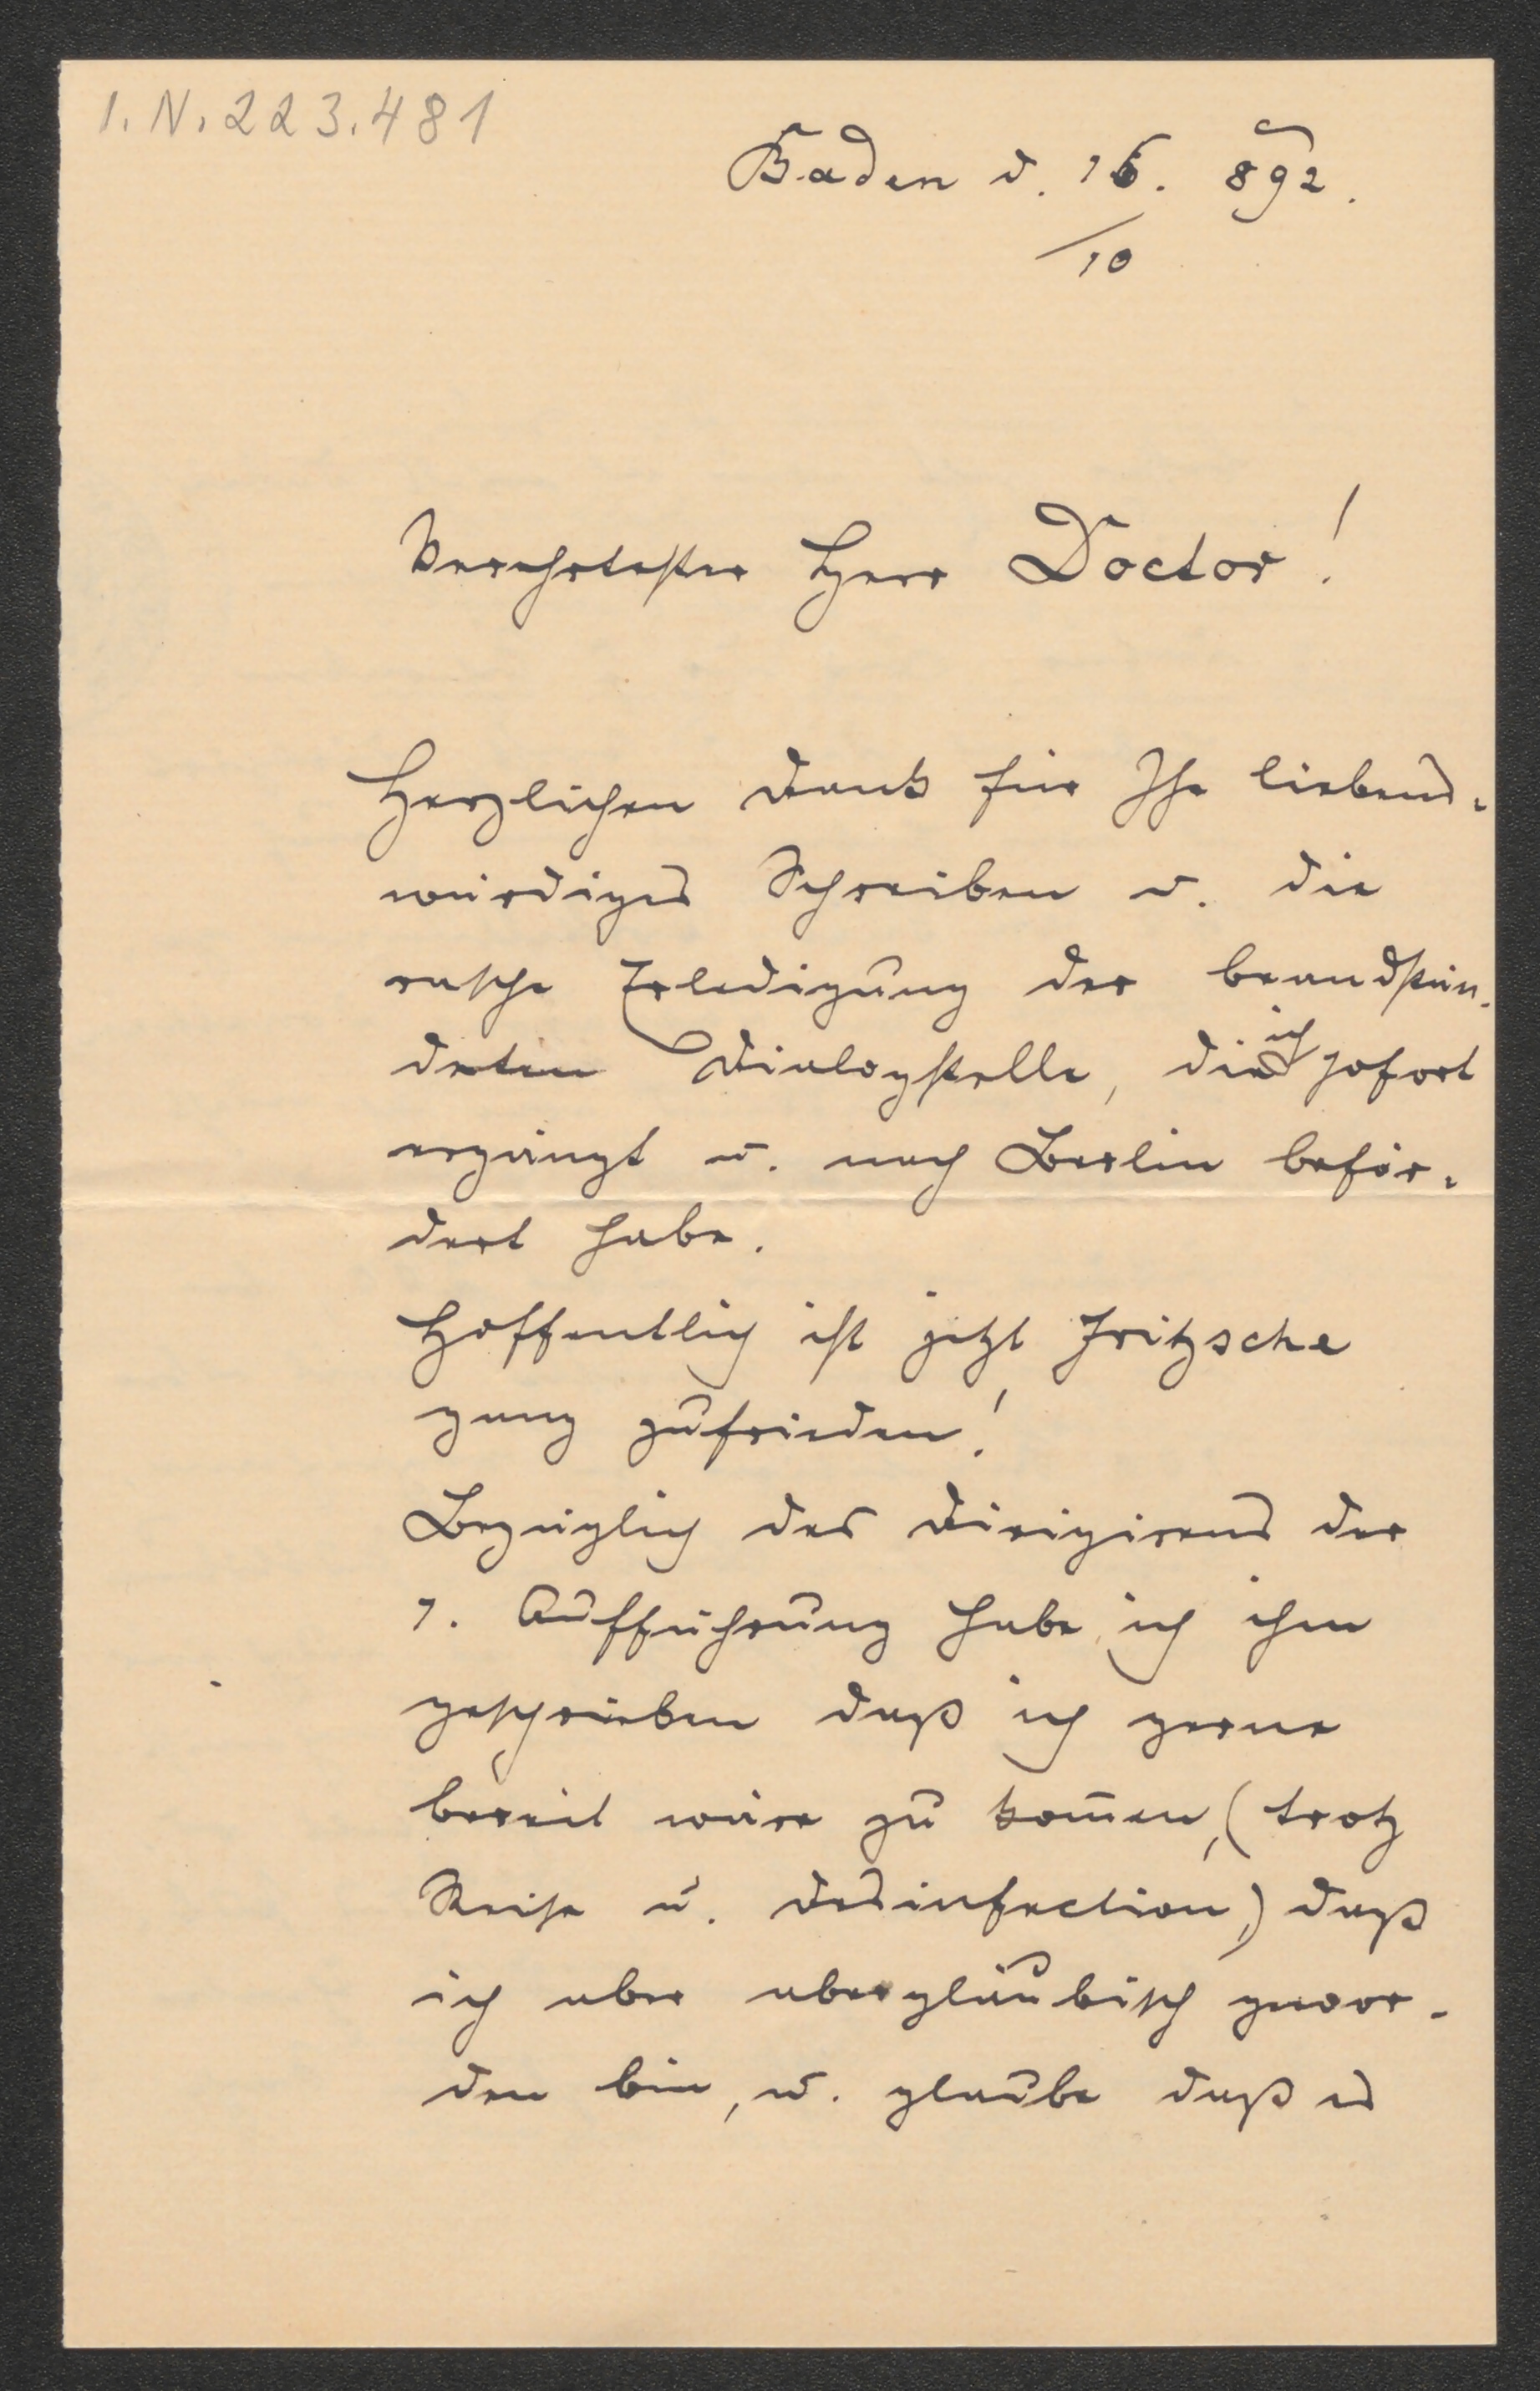 I.N. 223.481
Baden d. 16. 892.
/10
Verehrtester Herr Doctor!
Herzlichen Dank für Ihr liebens-
würdiges Schreiben u. die
rasche Erledigung der beandstän-
deten Dialogstelle, die ich sofort
ergänzt u. nach Berlin beför-
dert habe.
Hoffentlich ist jetzt Fritzsche
ganz zufrieden!
Bezüglich des Dirigirens der
1. Aufführung habe ich ihm
geschrieben daß ich gerne
bereit wäre zu kom̅en, (trotz
Reise u. Desinfection,) daß
ich aber abergläubisch gewor-
den bin, u. glaube daß es